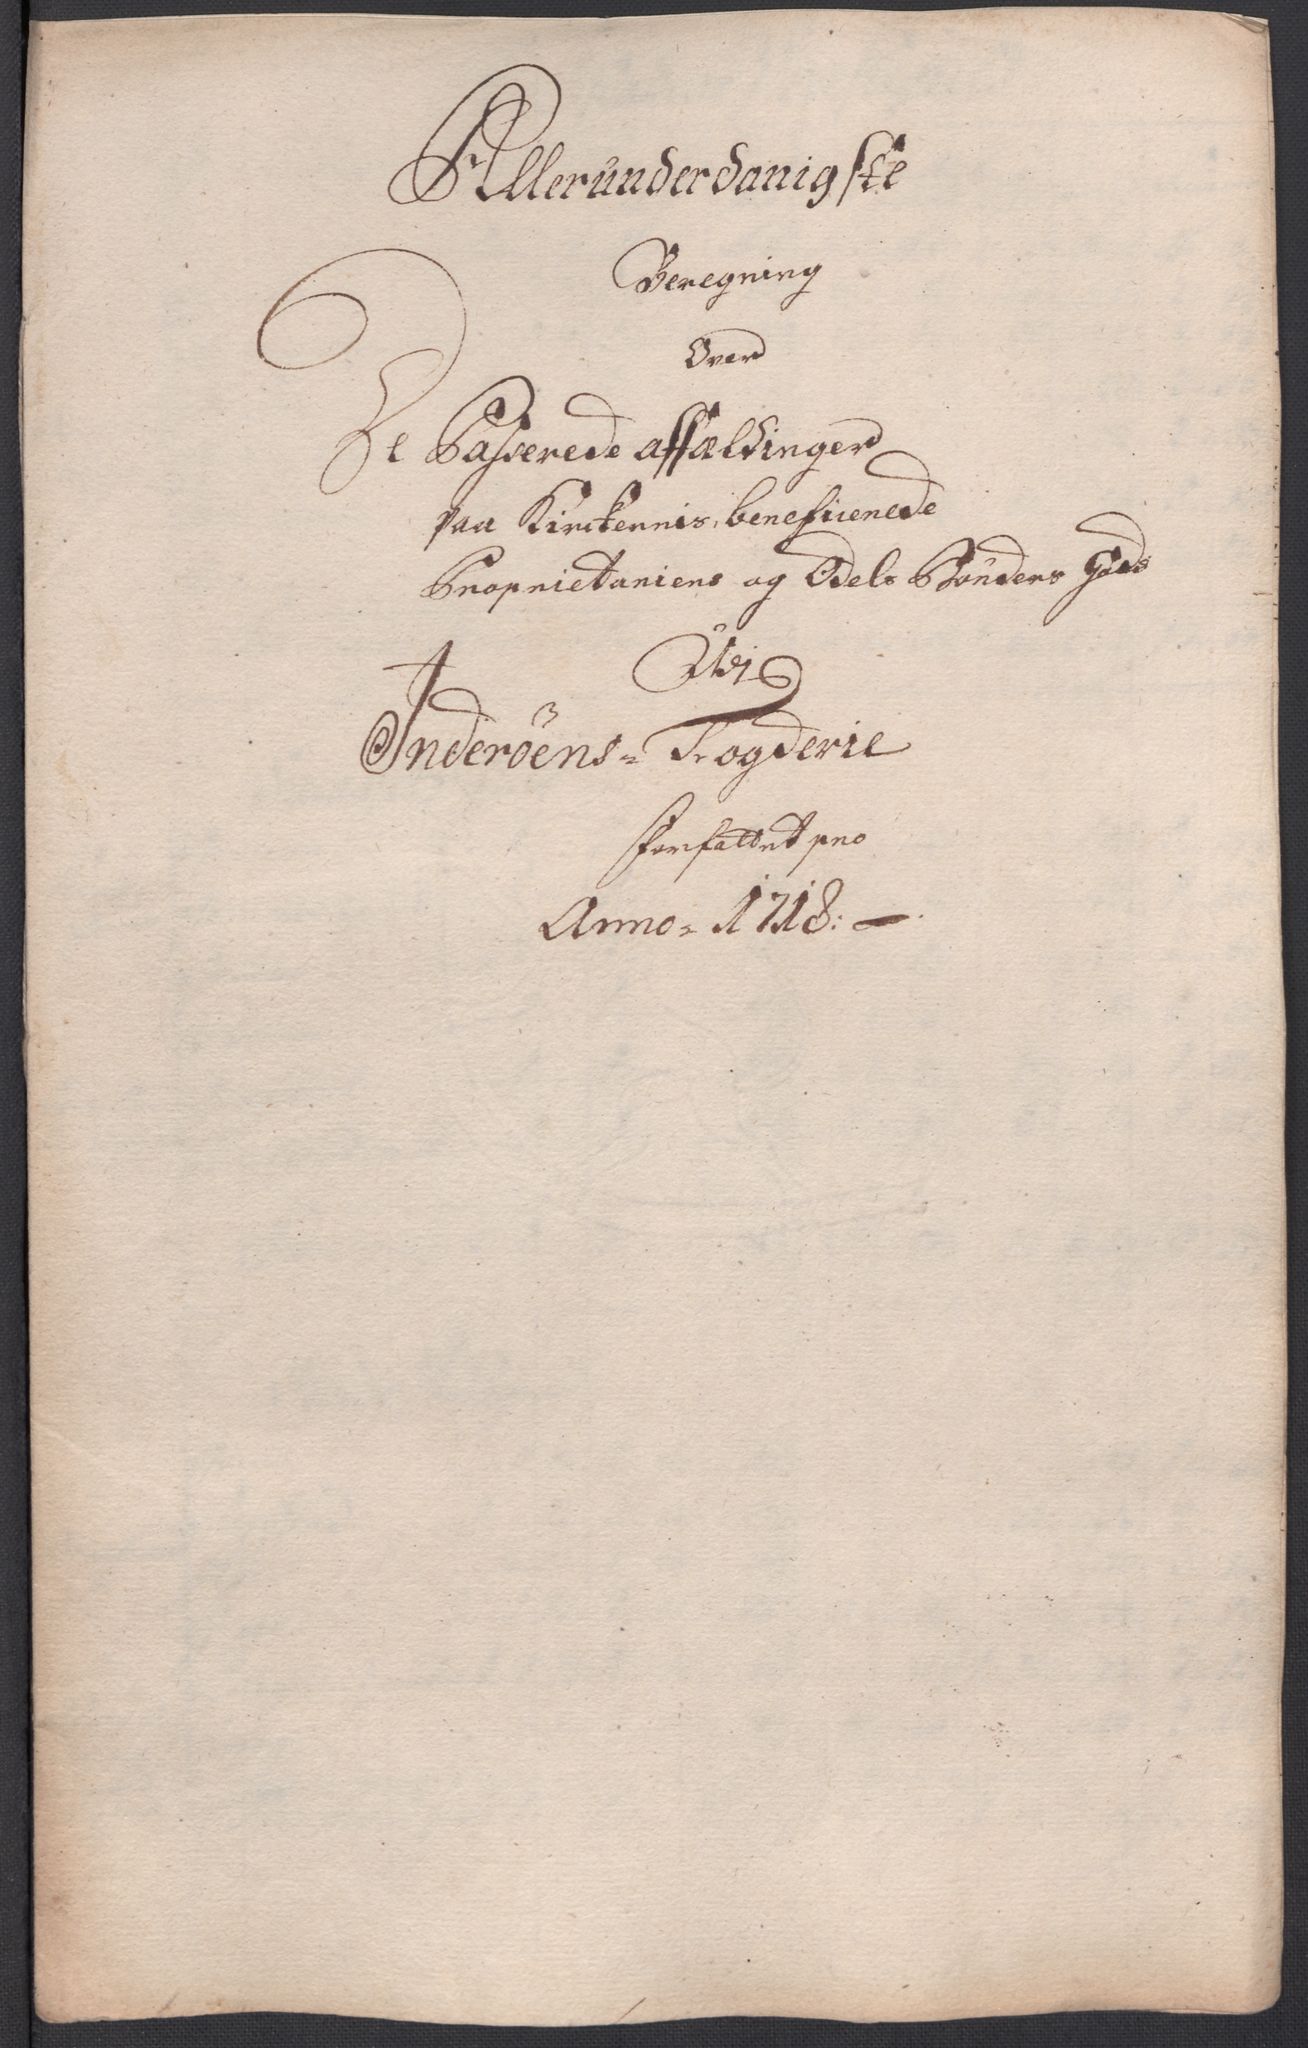 Allerunderdanigste
Beregning
Over
De Passerede affældinger
paa Kirckernis, beneficerede
Proprietariers og Odels Bønders Gods
Udj
Inderöens= Fogderie
forfattet pro
Anno= 1718: